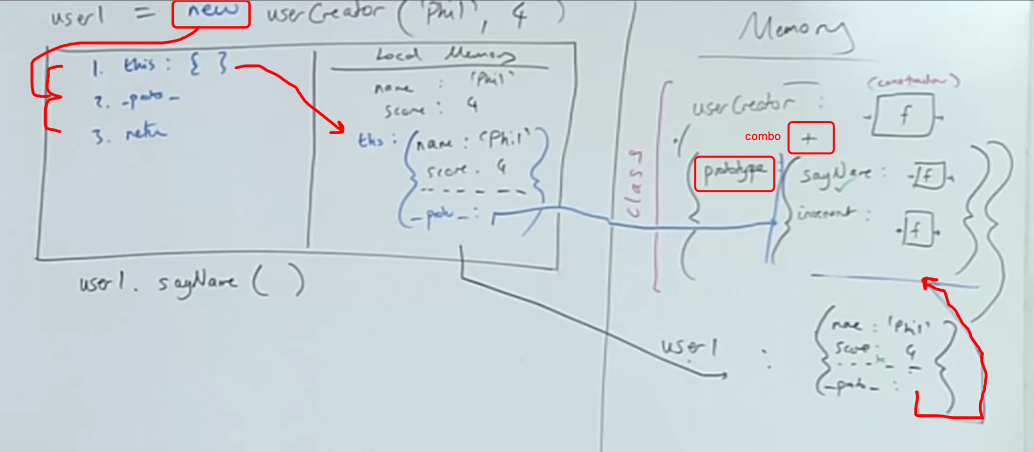 user1 = new userCreator ('Phil', 4)
1. this : { }
2. _proto_
3. return
Local Memory
name : 'Phil'
score : 4
this : { name : 'Phil'
score . 4
- - - - - - -
_proto_ : }
user1. sayName ( )
Memory
(constructor)
userCreator : f
combo +
class
prototype : { sayName : f
increment : f }
user1 : { name : 'Phil'
score : 4
- - - - - -
_proto_ : }